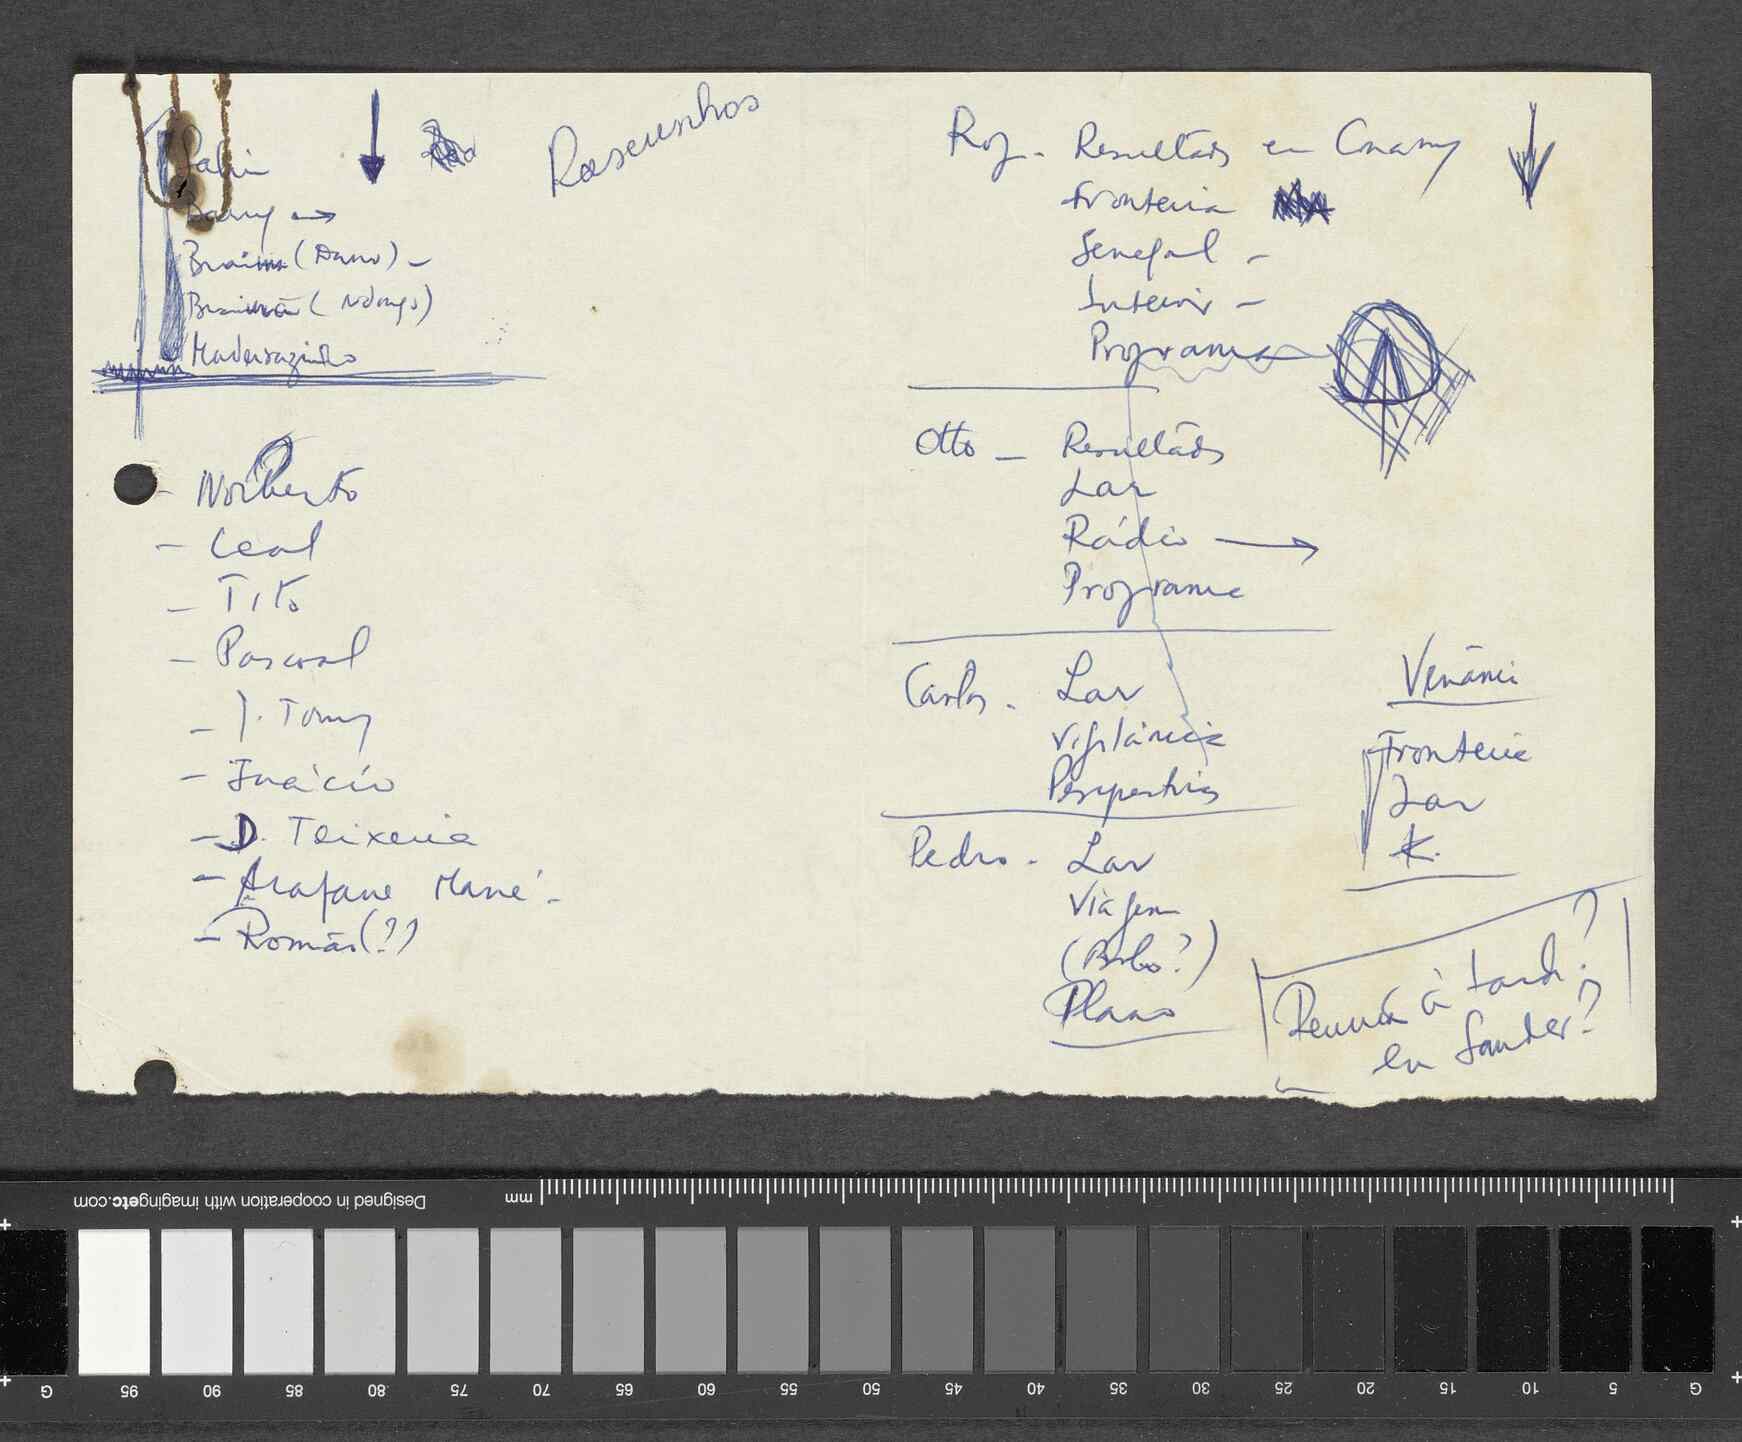 Barry →
Braima (Dano) –
Braima (Ndongo)
– Norberto
– Leal
– Tito
– Pascoal
– J. Tomy
– Inácio
– D. Teixeira
– Arafane Mané.
– Romão (??)
Roz. – Resultados en Conakry
Fronteira
Senegal –
Interior –
Programa
Otto – Resultados
Lar
Rádio →
Programa
Carlos – Lar
Vigilância
Perspectivas
Pedro – Lar
Viagem
(Bobo?)
Plano
Venânci
Fronteira
Lar
K.
Reunião à tarde?
en Sander?
Designed in cooperation with imagingetc.com
mm
G 95 90 85 80 75 70 65 60 55 50 45 40 35 30 25 20 15 10 5 G